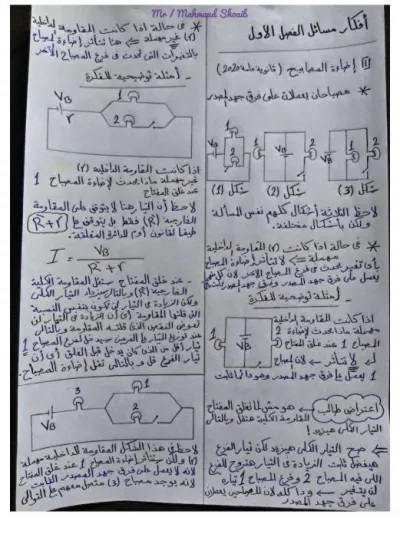 Mr / Mahmoud Shoaib
أفكار مسائل الفصل الأول
(1) إضاءة المصابيح (ثانوية عامة 2020)
* مصباحان يعملان على فرق جهد المصدر
VB
1
2
شكل (1)
شكل (2)
شكل (3)
لاحظ الثلاثة أشكال كلهم نفس المسألة
ولكن بأشكال مختلفة.
* فى حالة اذا كانت (r) المقاومة الداخلية
مهملة ← لا تتأثر إضاءة المصباح
بأى تغيير يحدث فى فرع المصباح الآخر لأن كل
يعمل على فرق جهد المصدر وفرق جهد المصدر ثابت
أمثلة توضيحية للفكرة
VB
1
2
اذا كانت المقاومة الداخلية
مهملة ماذا يحدث لإضاءة
المصباح 1 عند غلق المفتاح
لا تتأثر ← لأن المصباح
1 يعمل على فرق جهد المصدر وهو دائما ثابت
اعتراض طالب
← هو مش لما نغلق المفتاح
المقاومة الكلية هتقل وبالتالى
التيار الكلى هيزيد!
صح التيار الكلى هيزيد لكن تيار الفرع
هيفضل ثابت الزيادة فى التيار هتروح للفرع
اللى فيه المصباح 2 وفرع المصباح 1 تياره
لن يتغير ← ودا كله لأن المصباحين يعملان
على فرق جهد المصدر
* فى حالة اذا كانت المقاومة الداخلية
(r) غير مهملة ← هنا تتأثر إضاءة المصباح
بالتغيرات التى تحدث فى فرع المصباح الآخر
- أمثلة توضيحية للفكرة
VB
r
1
2
اذا كانت المقاومة الداخلية (r)
غير مهملة ماذا يحدث لإضاءة المصباح 1
عند غلق المفتاح
لاحظ أن التيار هنا لا يتوقف على المقاومة
الخارجية (R) فقط بل يتوقف على R+r
طبقا لقانون أوم للدائرة المغلقة:
I = VB / R + r
- عند غلق المفتاح ستقل المقاومة الكلية
الخارجية (R) وبالتالى سيزداد التيار الكلى
ولكن الزيادة فى التيار لن تكون بنفس النسبة
التى قلتها المقاومة (أى أن الزيادة فى التيار لن
تعوض النقص الذى قلته المقاومة وبالتالى
عند توزيع التيار على الفرعين سيدخل لفرع المصباح 1
تيار أقل من الذى كان يدخل قبل الغلق (أى أن
تيار الفرع قل) وبالتالى تقل إضاءة المصباح.
3
1
2
VB
لاحظ فى هذا الشكل المقاومة الداخلية مهملة
(r) ولكن ستتأثر إضاءة المصباح 1 عند غلق المفتاح
لأنه لا يعمل على فرق جهد المصدر الثابت
لأنه يوجد مصباح (3) متصل معهم على التوالى